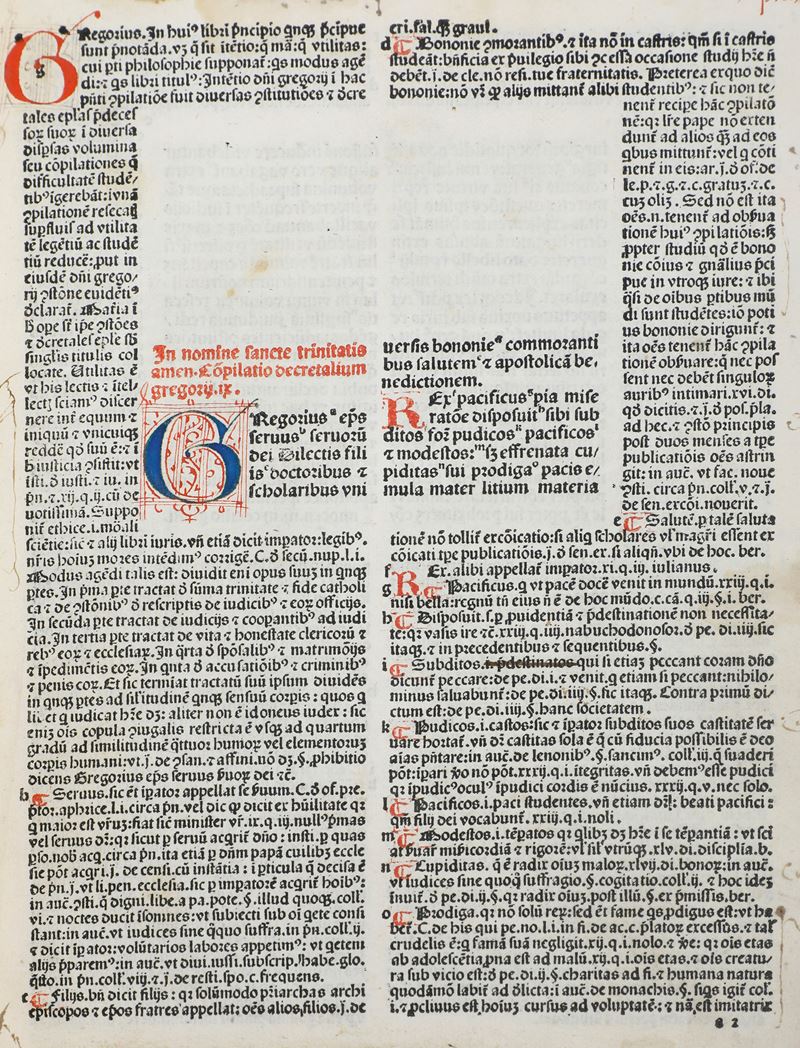 Regorius. In huiꝰ libri pͥncipio qnqꝫ pͥcipue
sunt pͥnotāda. vꝫ q̄ sit itētio: q̄ mā: q̄ vtilitas:
cui pti philosophie supponat᷑: qs modus agē
di: ⁊ qs libri titulꝰ: Intētio dn̄i gregorij ī hac
pn̄ti ꝯpilatiōe fuit diuersas ꝯstitutiōes ⁊ d̄cre
tales ep̄las pͥdeces
soꝝ suoꝝ ī diuersa
disꝑsas volumina
seu cōpilationes q̄
difficultatē studē/
tibꝰ īgerebāt: ī vnā
ꝯpilationē resecaꝭ
suꝑfluis ad vtilita
tē legētiū ac studē
tiū reducē: put in
eiusdē dn̄i grego/
rij ꝯstōne euidētiꝰ
d̄clarat᷑. Mat̄ia ī
singlis titulis col
locate. Utilitas ē
vt his lectis ⁊ ītel/
lectꝭ sciamꝰ discer
nere int̄ equum ⁊
iniquū ⁊ vnicuiqꝫ
reddē qd̄ suū ē: ⁊ ī
uotissimā. Suppo
nit᷑ ethice .i. mōali
sciētie: sic ⁊ alij libri iuris. vn̄ etiā dicit imꝑator: legibꝰ.
nr̄is hoiuꝫ mores intēdimꝰ corrigē. C. d̄ secū. nup. l. i.
Modus agēdi talis est: diuidit eni opus suuꝫ in qnqꝫ
ptes. In pͥma pte tractat d̄ sūma trinitate ⁊ fide catholi
ca ⁊ de ꝯstōnibꝰ d̄ rescriptis de iudicibꝰ ⁊ eoꝝ officijs.
In secūda pte tractat de iudicijs ⁊ coopantibꝰ ad iudi
cia. In tertia pte tractat de vita ⁊ honestate clericoꝝ ⁊
rebꝰ eoꝝ ⁊ ecclesiaꝝ. In q̄rta d̄ spōsalibꝰ ⁊ matrimōijs
⁊ īpedimētis eoꝝ. In qnta d̄ accusatiōibꝰ ⁊ criminibꝰ
⁊ penis eoꝝ. Et sic termiat tractatū suū ipsum diuidēs
in qnqꝫ ptes ad sil'itudinē qnqꝫ sensuū corpis: quos q
li. et q iudicat hr̄e dꝫ: aliter non ē idoneus iudex: sic
eniꝫ ois copula ꝯiugalis restricta ē vsqꝫ ad quartum
gradū ad similitudinē q̄ttuor humoꝝ vel elementoꝝ
corpis humani: vt .j. de ꝯsan. ⁊ affini. nō dꝫ. §. ꝓhibitio
dicens Gregorius ep̄s seruus ẜuoꝝ dei ⁊c̄.
b Seruus. sic ēt īpator appellat se ẜuum. C. d̄ of. pre.
ptor. aphrice. l. i. circa pn̄. vel dic ꝙ dicit ex hūilitate qꝛ
vel seruus dr̄: qꝛ sicut ꝑ seruū acqrit᷑ dn̄o: insti. ꝑ quas
pso. nob. acq. circa pn̄. ita etiā ꝑ dn̄m papā cuilibꝫ eccle
sie pōt acqri .j. de censi. cū īstātia: ī pticula q̄ decisa ē
de pn̄ .j. vt li. pen. ecclesia. sic ꝑ impatorē acqrit᷑ hoibꝰ:
in auc. ꝯsti. q̄ digni. libe. a pa. pote. §. illud quoqꝫ. coll.
vi. ⁊ noctes ducit īsomnes: vt subiecti sub oī q̄ete consi
stant: in auc. vt iudices sine q̄quo suffra. in pn̄. coll. ij.
⁊ dicit īpator: volūtarios labores appetimꝰ: vt q̄etem
alijs pͥparemꝰ: in auc. vt diui. iussi. subscrip. habe. glo.
q̄sito. in pn̄. coll. viij. ⁊ .j. de resti. spo. c. frequens.
c Filijs. bn̄ dicit filijs: qꝛ solūmodo pͥiarchas archi
ep̄iscopos ⁊ ep̄os fratres appellat: oēs alios, filios. j. de
In nomine sancte trinitatis
amen. Cōpilatio decretalium
gregorij. ix.
GRegoriusᵃ ep̄s
seruusᵇ seruorū
dei Dilectis fili
isᶜ doctoribus ⁊
scholaribus vni
uersis bononieᵈ commoranti
bus salutemᵉ ⁊ apostolicā be.
nedictionem.
RExᶠ pacificusᵍ pia mise
ratōe disposuitʰ sibi sub
ditosⁱ forꝫ pudicosᵏ pacificosˡ
⁊ modestos:ᵐ sꝫ effrenata cu/
piditasⁿ sui prodigaᵒ pacis e/
mula mater litium materia
cri. fal. qꝫ graui.
d Bononie ꝯmorantibꝰ. ⁊ ita nō in castris: qm̄ si ī castris
studeāt: bn̄ficia ex pͥuilegio sibi ꝯcesso occasione studij hr̄e n̄
debēt .j. de cle. nō resi. tue fraternitatis. Preterea ex quo dic̄
bononie: nō vr̄ ꝙ alijs mittant᷑ alibi studentibꝰ: ⁊ sic non te/
nent᷑ recipe hāc ꝯpilatō
nē: qꝛ lr̄e pape nō exten
dunt᷑ ad alios q̄ꝫ ad eos
qbus mittunt᷑: vel q cōti
nent᷑ in eis: ar .j. d̄ of. de
le. p. ⁊ g. ⁊ c. gratuꝫ. ⁊ c.
cuꝫ oliꝫ. Sed nō est ita
oēs. n. tenent᷑ ad obẜua
tionē huiꝰ ꝯpilatiōis: sꝫ
ꝓpter studiū qd̄ ē bono
nie cōius ⁊ gn̄alius pͥci
pue in vtroqꝫ iure: ⁊ ibi
q̄si de oibus ptibus mū
di sunt studētes: iō poti
us bononie dirigunt᷑: ⁊
ita oēs tenent᷑ hāc ꝯpila
tionē obẜuare: qꝛ nec pos
sent nec debēt singuloꝝ
auribꝰ intimari. xvi. di.
qd̄ dicitis. ⁊ .j. d̄ pos. pla.
ad hec. ⁊ ꝯstō principis
post duos menses a tp̄e
publicatiōis oēs astrin
git: in auc. vt fac. noue
ꝯsti. circa pn̄. coll. v. ⁊ .j.
de sen. excōi. nouerit.
e Salutē. ꝑ talē saluta
tionē nō tollit᷑ excōicatio: si aliq scholares vl' mgr̄i essent ex
cōicati tp̄e publicatiōis .j. d̄ sen. ex. si aliqn̄. vbi de hoc. ber.
f Ex. alibi appellat᷑ impator. xi. q. iij. iulianus.
g RPacificus. q vt pacē docē venit in mundū. xxiij. q. i.
nisi bella: regnū tn̄ eius n̄ ē de hoc mūdo. c. cā. q. iij. §. i. ber.
h Disposuit. s. ꝑ ꝓuidentiā ⁊ pͥdestinationē non necessita/
te: qꝛ vasis ire ⁊c̄. xxiij. q. iiij. nabuchodonosor. d̄ pe. di. iiij. sic
itaqꝫ. ⁊ in precedentibus ⁊ sequentibus. §.
i Subditos. qui si etiaꝫ peccant coram dn̄o
dicunt᷑ peccare: de pe. di. i. ⁊ venit. q etiam si peccant: nihilo/
minus saluabunt᷑: de pe. di. iiij. §. sic itaqꝫ. Contra primū di/
ctum est: de pe. di. iiij. §. hanc societatem.
k Pudicos. i. castos: sic ⁊ īpator subditos suos castitatē ser
uare hortat᷑. vn̄ dr̄ castitas sola ē q̄ cū fiducia possibilis ē deo
aīas pn̄tare: in auc. de lenonibꝰ. §. sancimꝰ. coll. iij. q̄ suaderi
pōt: īpari vo nō pōt. xxxij. q. i. ītegritas. vn̄ debemꝰ esse pudici
qꝛ īpudicꝰ oculꝰ īpudici cordis ē nūcius. xxxij. q. v. nec solo.
l Pacificos. i. paci studentes. vn̄ etiam dr̄: beati pacifici:
qm̄ filij dei vocabunt᷑. xxiij. q. i. noli.
m Modestos. i. tēpatos qꝛ qlibꝫ dꝫ hr̄e ī se tēpantiā: vt sci
at ẜuar̄ mīcordiā ⁊ rigorē: vl' sil' vtrūqꝫ. xlv. di. disciplīa. b.
n Cupiditas. q̄ ē radix oiuꝫ maloꝝ. xlvij. di. bonoꝝ: in auc.
vt iudices sine quoqꝫ suffragio. §. cogitatio. coll. ij. ⁊ hoc ideꝫ
īnuit᷑. d̄ pe. di. ij. §. qꝛ radix oiuꝫ. post illū. §. ex pͥmissis. ber.
o Prodiga. qꝛ nō solū rep: sed ēt fame qs ꝓdigus est: vt ha
bet᷑. C. de his qui pe. no. l. i. in fi. de ac. c. plator excessꝰ. ⁊ tal'
crudelis ē: q famā suā negligit. xij. q. i. nolo. ⁊ ẜe: qꝛ ois etas
ab adolescētia, pna est ad malū. xij. q. i. ois etas. ⁊ ois creatu/
ra sub vicio est: d̄ pe. di. ij. §. charitas ad fi. ⁊ humana natura
quodāmō labit᷑ ad d̄licta: ī auc. de monachis. §. sigs igit᷑ col'.
i. ⁊ ꝓcliuus est hoiuꝫ cursus ad voluptatē: ⁊ nā est imitatrix
a 2